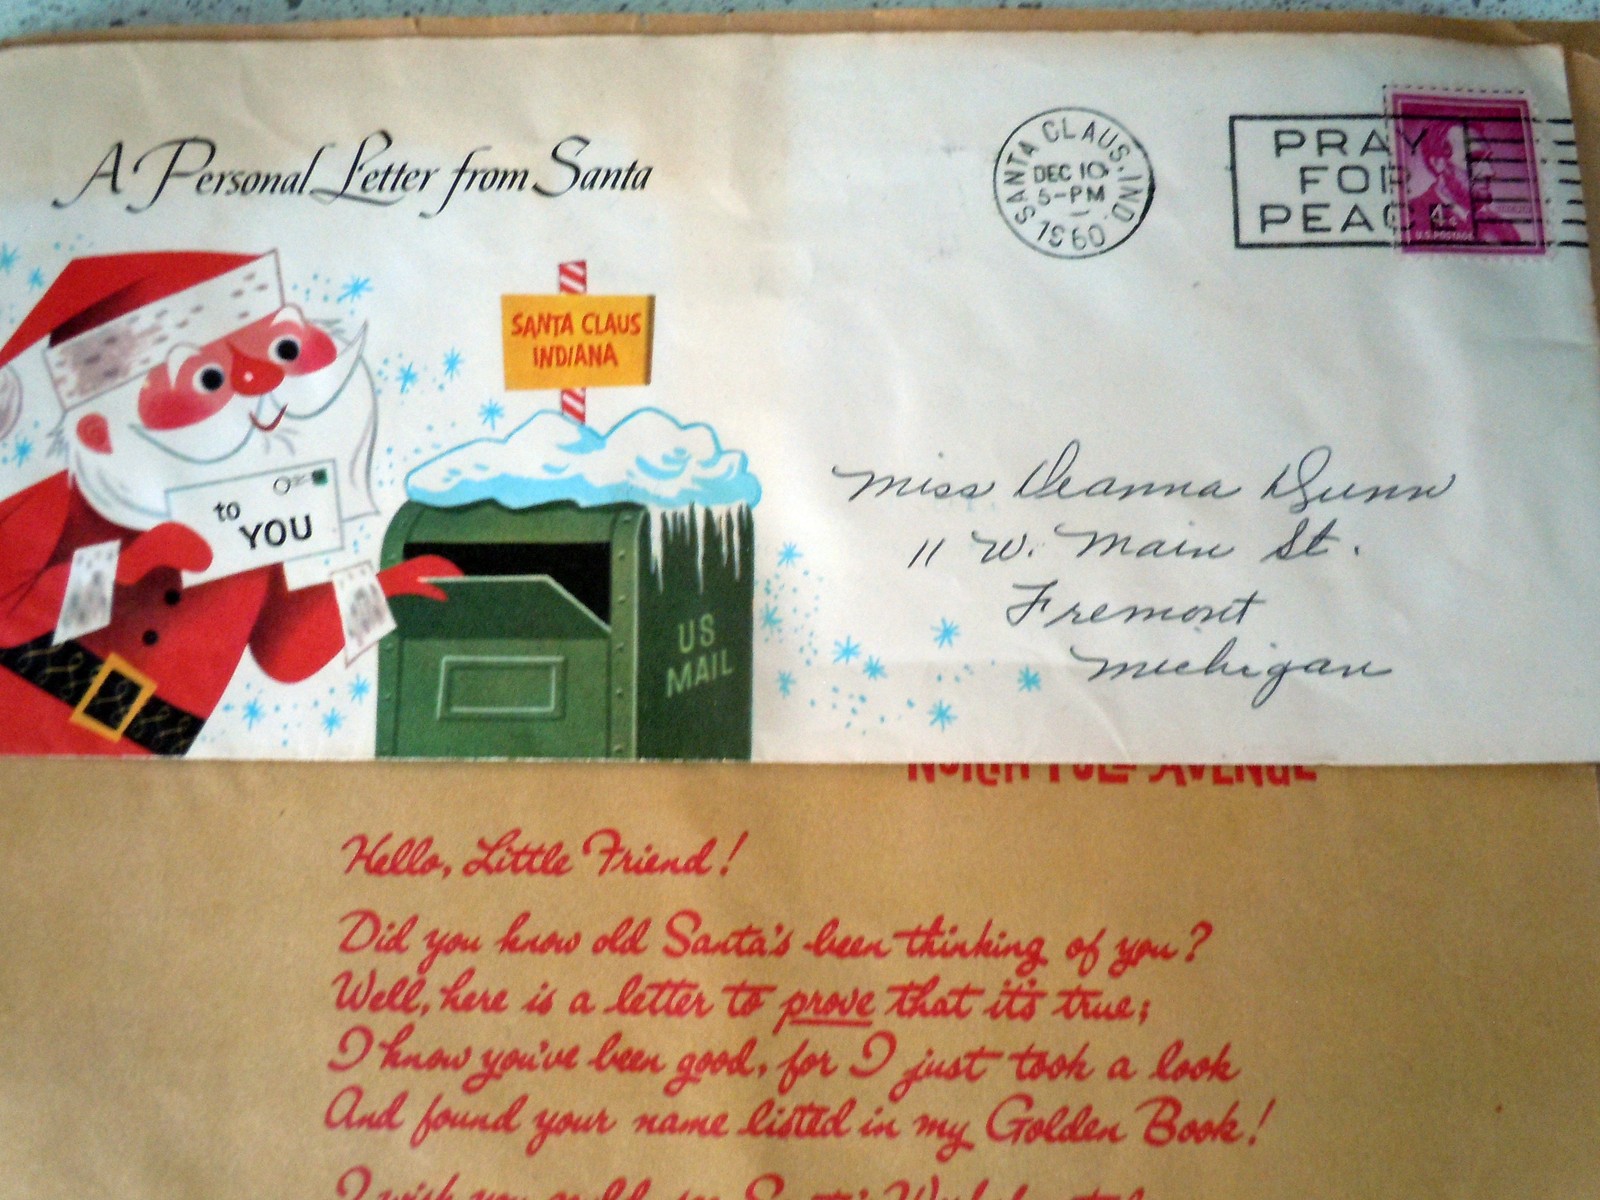 A Personal Letter from Santa
SANTA CLAUS, IND.
DEC 10
5-PM
1960
PRAY
FOR
PEACE
4¢
U.S. POSTAGE
SANTA CLAUS
INDIANA
to
YOU
US
MAIL
Miss Deanna Dunn
11 W. Main St.
Fremont
Michigan
NORTH POLE AVENUE
Hello, Little Friend!
Did you know old Santa's been thinking of you?
Well, here is a letter to prove that it's true;
I know you've been good, for I just took a look
And found your name listed in my Golden Book!
I wish you could see Santa's